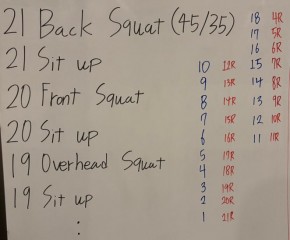 21 Back Squat (45/35)
21 Sit up
20 Front Squat
20 Sit up
19 Overhead Squat
19 Sit up
:
10 12R
9 13R
8 14R
7 15R
6 16R
5 17R
4 18R
3 19R
2 20R
1 21R
18 4R
17 5R
16 6R
15 7R
14 8R
13 9R
12 10R
11 11R